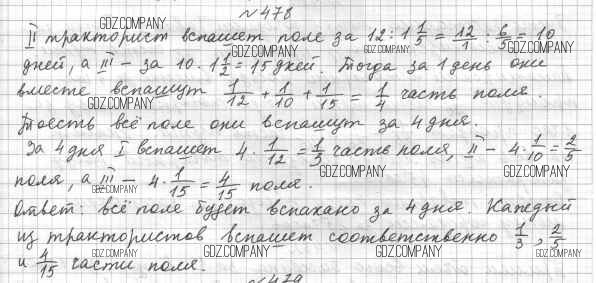 №478
II тракторист вспашет поле за 12 : 1 1/5 = 12/1 : 6/5 = 10
дней, а III – за 10 · 1 1/2 = 15 дней. Тогда за 1 день они
вместе вспашут 1/12 + 1/10 + 1/15 = 1/4 часть поля.
Тоесть всё поле они вспашут за 4 дня.
За 4 дня I вспашет 4 · 1/12 = 1/3 часть поля, II – 4 · 1/10 = 2/5
поля, а III – 4 · 1/15 = 4/15 поля.
Ответ: всё поле будет вспахано за 4 дня. Каждый
из трактористов вспашет соответственно 1/3, 2/5
и 4/15 части поля.
№479
GDZ.COMPANY
GDZ.COMPANY
GDZ.COMPANY
GDZ.COMPANY
GDZ.COMPANY
GDZ.COMPANY
GDZ.COMPANY
GDZ.COMPANY
GDZ.COMPANY
GDZ.COMPANY
GDZ.COMPANY
GDZ.COMPANY
GDZ.COMPANY